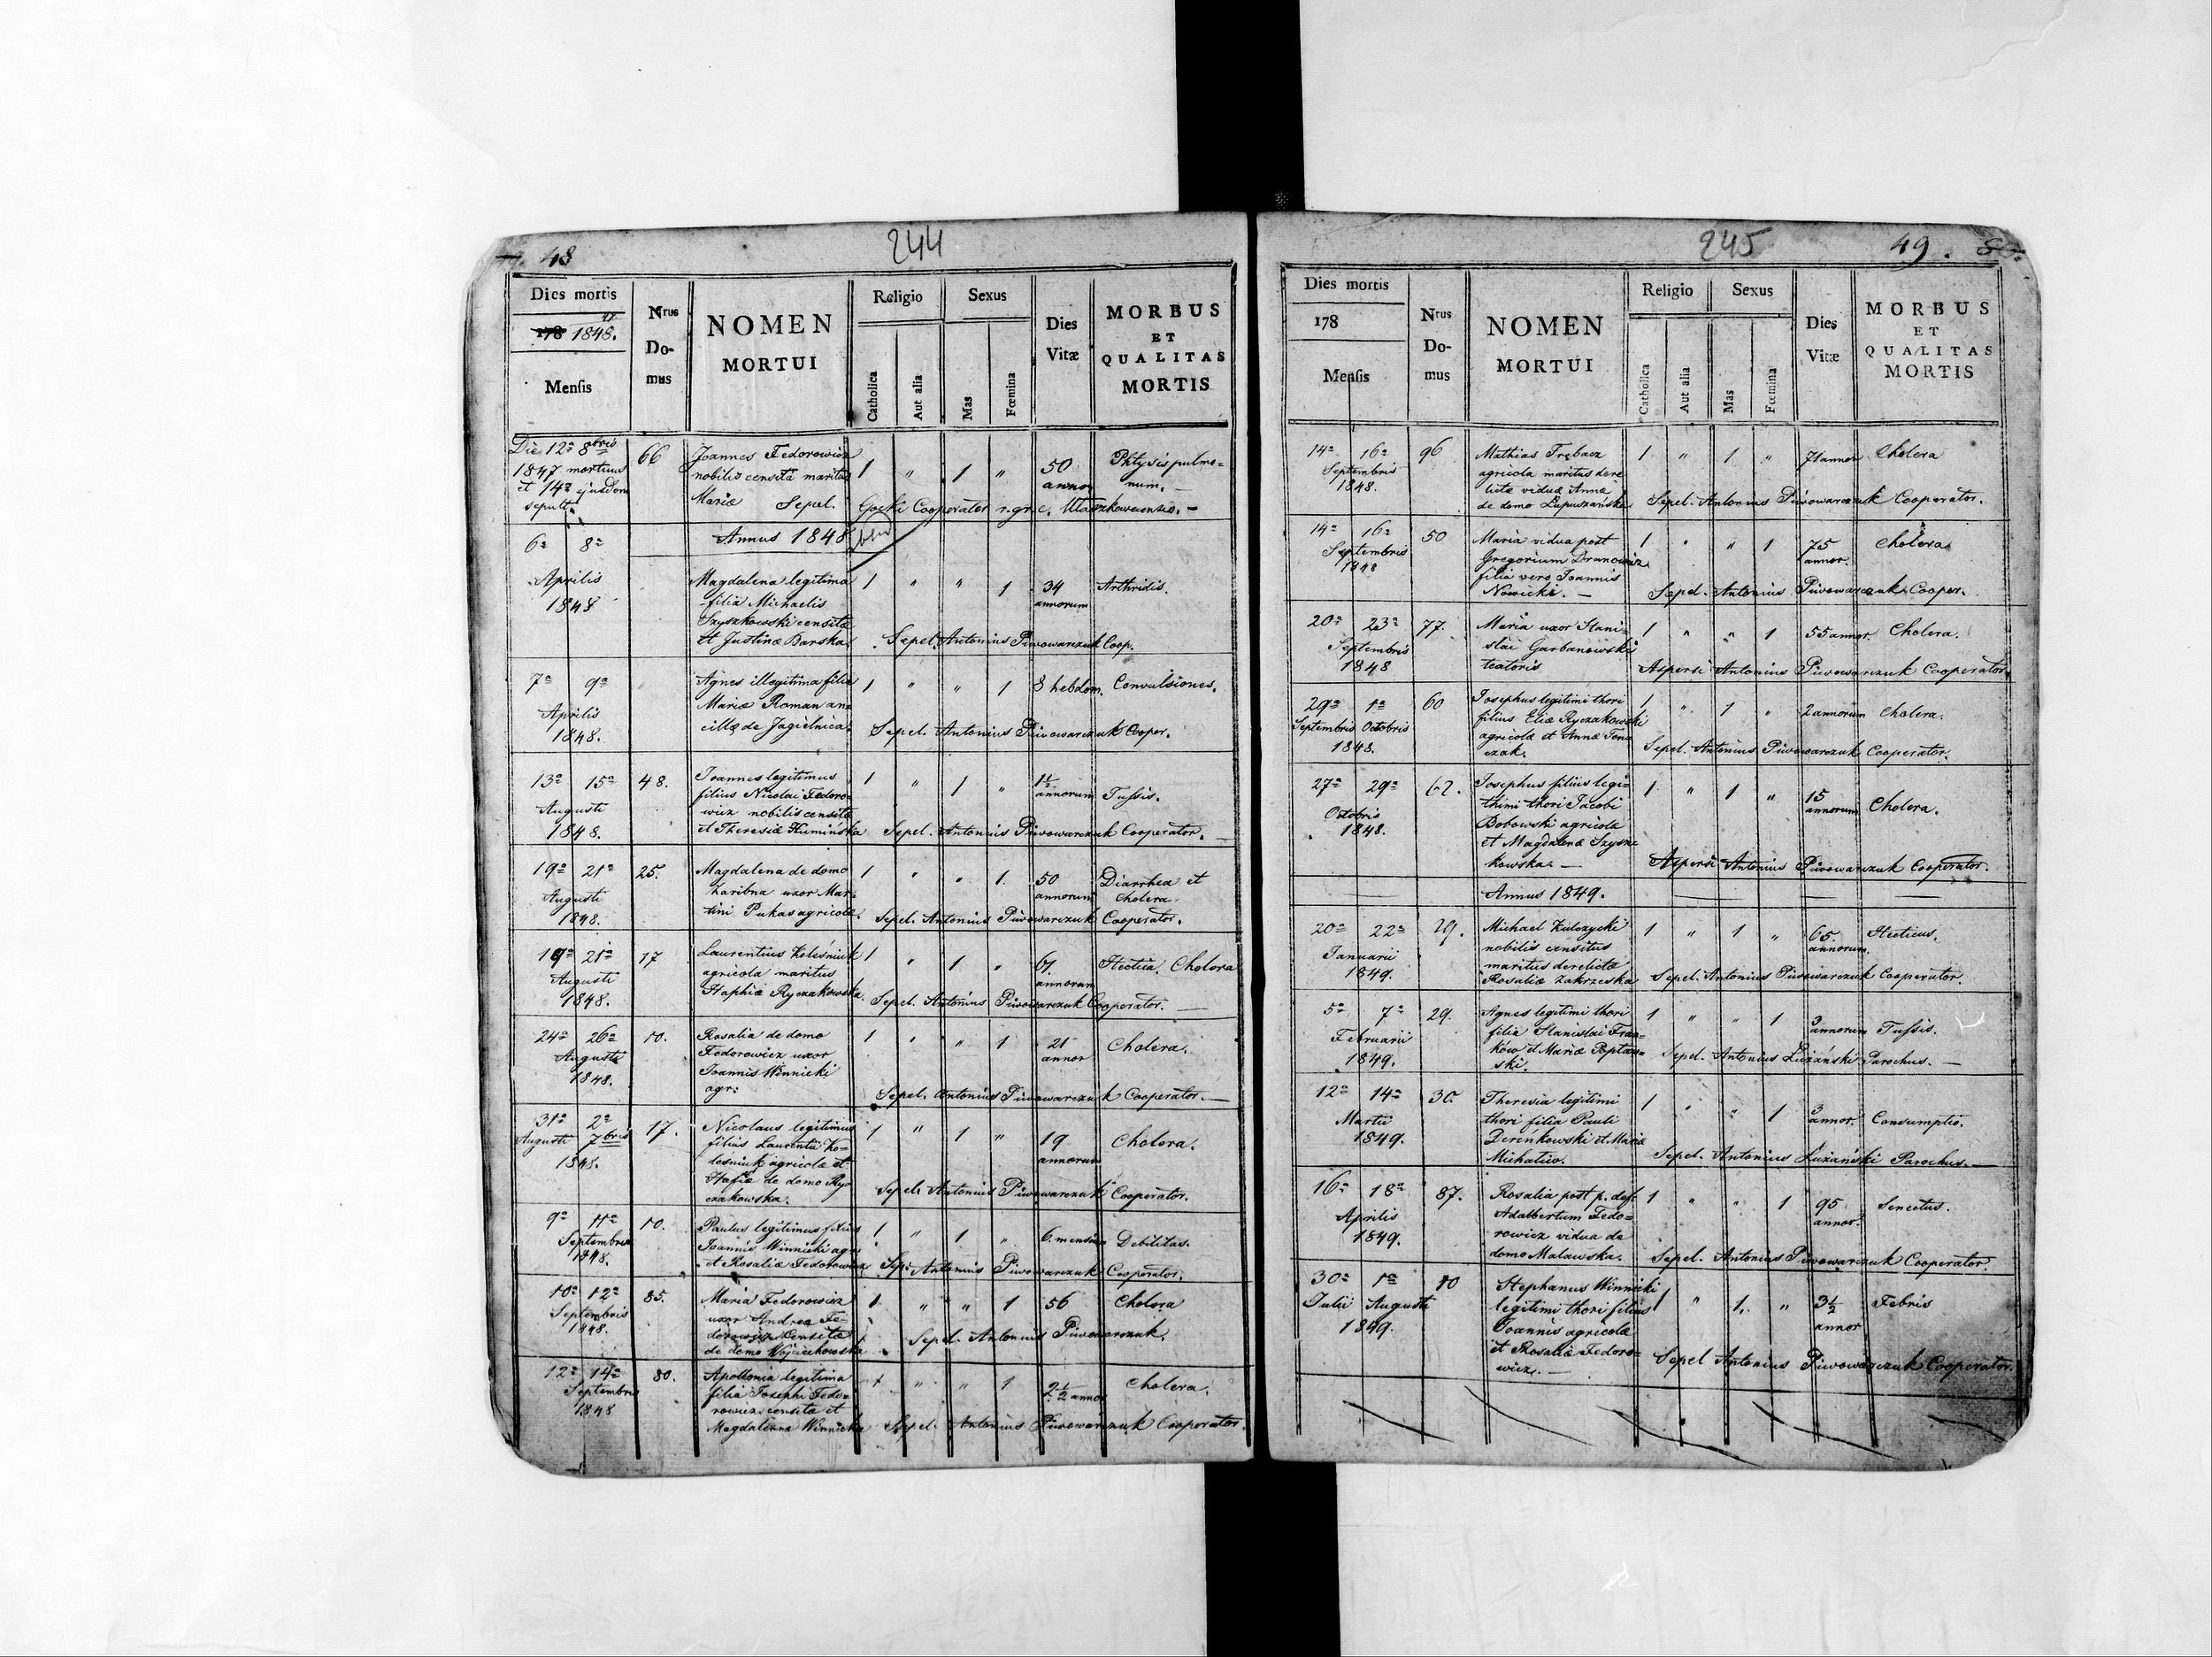 48
244
Dies mortis
178 1848. 47
Mensis
Nrus
Do-
mus
NOMEN
MORTUI
Religio
Catholica
Aut alia
Sexus
Mas
Fœmina
Dies
Vitæ
MORBUS
ET
QUALITAS
MORTIS
Die 12a 8bris
1847 mortuus
et 14a ejusdem
sepult.
66
Joannes Fedorowicz
nobilis censita maritus
Mariæ Sepel. Gocki Cooperator r. gr. c.
1 " 1 "
50
annor
Phtysis pulmo-
num.
Annus 1848
6a 8a
Aprilis
1848
Magdalena legitima
filia Michaelis
Szyszkowski censitæ
et Justinæ Barska.
1 " " 1
34
annorum
Arthridis.
Sepel. Antonius Piwowarczuk Coop.
7a 9a
Aprilis
1848.
Agnes illegitima filia
Mariæ Roman an
cillæ de Jagielnica.
1 " " 1
8 hebdom.
Convulsiones.
Sepel. Antonius Piwowarczuk Cooper.
13a 15a
Augusti
1848.
48.
Joannes legitimus
filius Nicolai Fedoro-
wicz nobilis censitæ
et Theresiæ Kumińska
1 " 1 "
1½
annorum
Tussis.
Sepel. Antonius Piwowarczuk Cooperator.
19a 21a
Augusti
1848.
25.
Magdalena de domo
Zaribna uxor Mar-
tini Pukas agricolæ.
1 " " 1.
50
annorum
Diarrhea et
Cholera.
Sepel. Antonius Piwowarczuk Cooperator.
19a 21a
Augusti
1848.
17
Laurentius Kolésniuk
agricola maritus
Haphiæ Ryczakowska.
1 " 1 "
61.
annorum
Hectica. Cholera
Sepel. Antonius Piwowarczuk Cooperator.
24a 26a
Augusti
1848.
10.
Rosalia de domo
Fedorowicz uxor
Joannis Winnicki
agr:
1 " " 1
21
annor
Cholera.
Sepel. Antonius Piwowarczuk Cooperator.
31a 2a
Augusti 7bris
1848.
17.
Nicolaus legitimus
filius Laurentii Ko-
lesniuk agricolæ et
Hafiæ de domo Ry-
czakowska.
1 " 1 "
19
annorum
Cholera.
Sepel. Antonius Piwowarczuk Cooperator.
9a 11a
Septembris
1848.
10.
Paulus legitimus filius
Joannis Winnicki agr.
et Rosaliæ Fedorowicz
1 " 1 "
6 mensiu
Debilitas.
Sep: Antonius Piwowarczuk Cooperator.
10a 12a
Septembris
1848.
85.
Maria Fedorowicz
uxor Andrea Fe-
dorowicz Censitæ
de domo Wojciechowska
1 " " 1
56
Cholera
Sepel. Antonius Piwowarczuk.
12a 14a
Septembris
1848
80.
Apollonia legitima
filia Josephi Fedo-
rowicz censitæ et
Magdalenna Winnicka
1 " " 1
2½ annor
Cholera.
Sepel. Antonius Piwowarczuk Cooperator.
245
49.
Dies mortis
178
Mensis
Nrus
Do-
mus
NOMEN
MORTUI
Religio
Catholica
Aut alia
Sexus
Mas
Fœmina
Dies
Vitæ
MORBUS
ET
QUALITAS
MORTIS
14a 16a
Septembris
1848.
96
Mathias Trębacz
agricola maritus dere
lictæ viduæ Anna
de domo Łupuszańska
1 " 1 "
71 annor
Cholera
Sepel. Antonius Piwowarczuk Cooperator.
14a 16a
Septembris
1848
50
Maria vidua post
Gregorium
filia vero Joannis
Nowicki.
1 " " 1
75
annor.
Cholera
Sepel. Antonius Piwowarczuk Cooper.
20a 23a
Septembris
1848
77.
Maria uxor Stani-
slai Garbanowski
textoris
1 " " 1
55 annor.
Cholera.
Aspersi Antonius Piwowarczuk Cooperator.
29a 1a
Septembris Octobris
1848.
60
Josephus legitimi thori
filius Eliæ Ryczakowski
agricolæ et Annæ
czak.
1 " 1 "
2 annorum
Cholera.
Sepel. Antonius Piwowarczuk Cooperator.
27a 29a
Octobris
1848.
62.
Josephus filius legi-
thimi thori Jacobi
Bobowski agricola
et Magdalenæ Szysz-
kowska.
1 " 1 "
15
annorum
Cholera.
Aspersi Antonius Piwowarczuk Cooperator.
Annus 1849.
20a 22a
Januarii
1849.
29.
Michael Kulczycki
nobilis censitus
maritus derelictæ
Rosaliæ Zakrzeska
1 " 1 "
65.
annorum.
Hecticus.
Sepel. Antonius Piwowarczuk Cooperator.
5a 7a
Februarii
1849.
29.
Agnes legitimi thori
filia Stanislai Fran-
ków et Mariæ Poptaw-
ski.
1 " " 1
3
annorum
Tussis.
Sepel. Antonius Łużański Parochus.
12a 14a
Martii
1849.
30.
Theresia legitimi
thori filia Pauli
Dereńkowski et Mariæ
Michatiw.
1 " " 1
3
annor.
Consumptio.
Sepel. Antonius Łużański Parochus.
16a 18a
Aprilis
1849.
87.
Rosalia post p. def.
Adalbertum Fedo-
rowicz vidua de
domo Malawska.
1 " " 1
95
annor.
Senectus.
Sepel. Antonius Piwowarczuk Cooperator.
30a 1a
Julii Augusti
1849.
10
Stephanus Winnicki
legitimi thori filius
Joannis agricolæ
et Rosaliæ Fedoro-
wicz.
1 " 1. "
3½
annor
Febris
Sepel Antonius Piwowarczuk Cooperator.